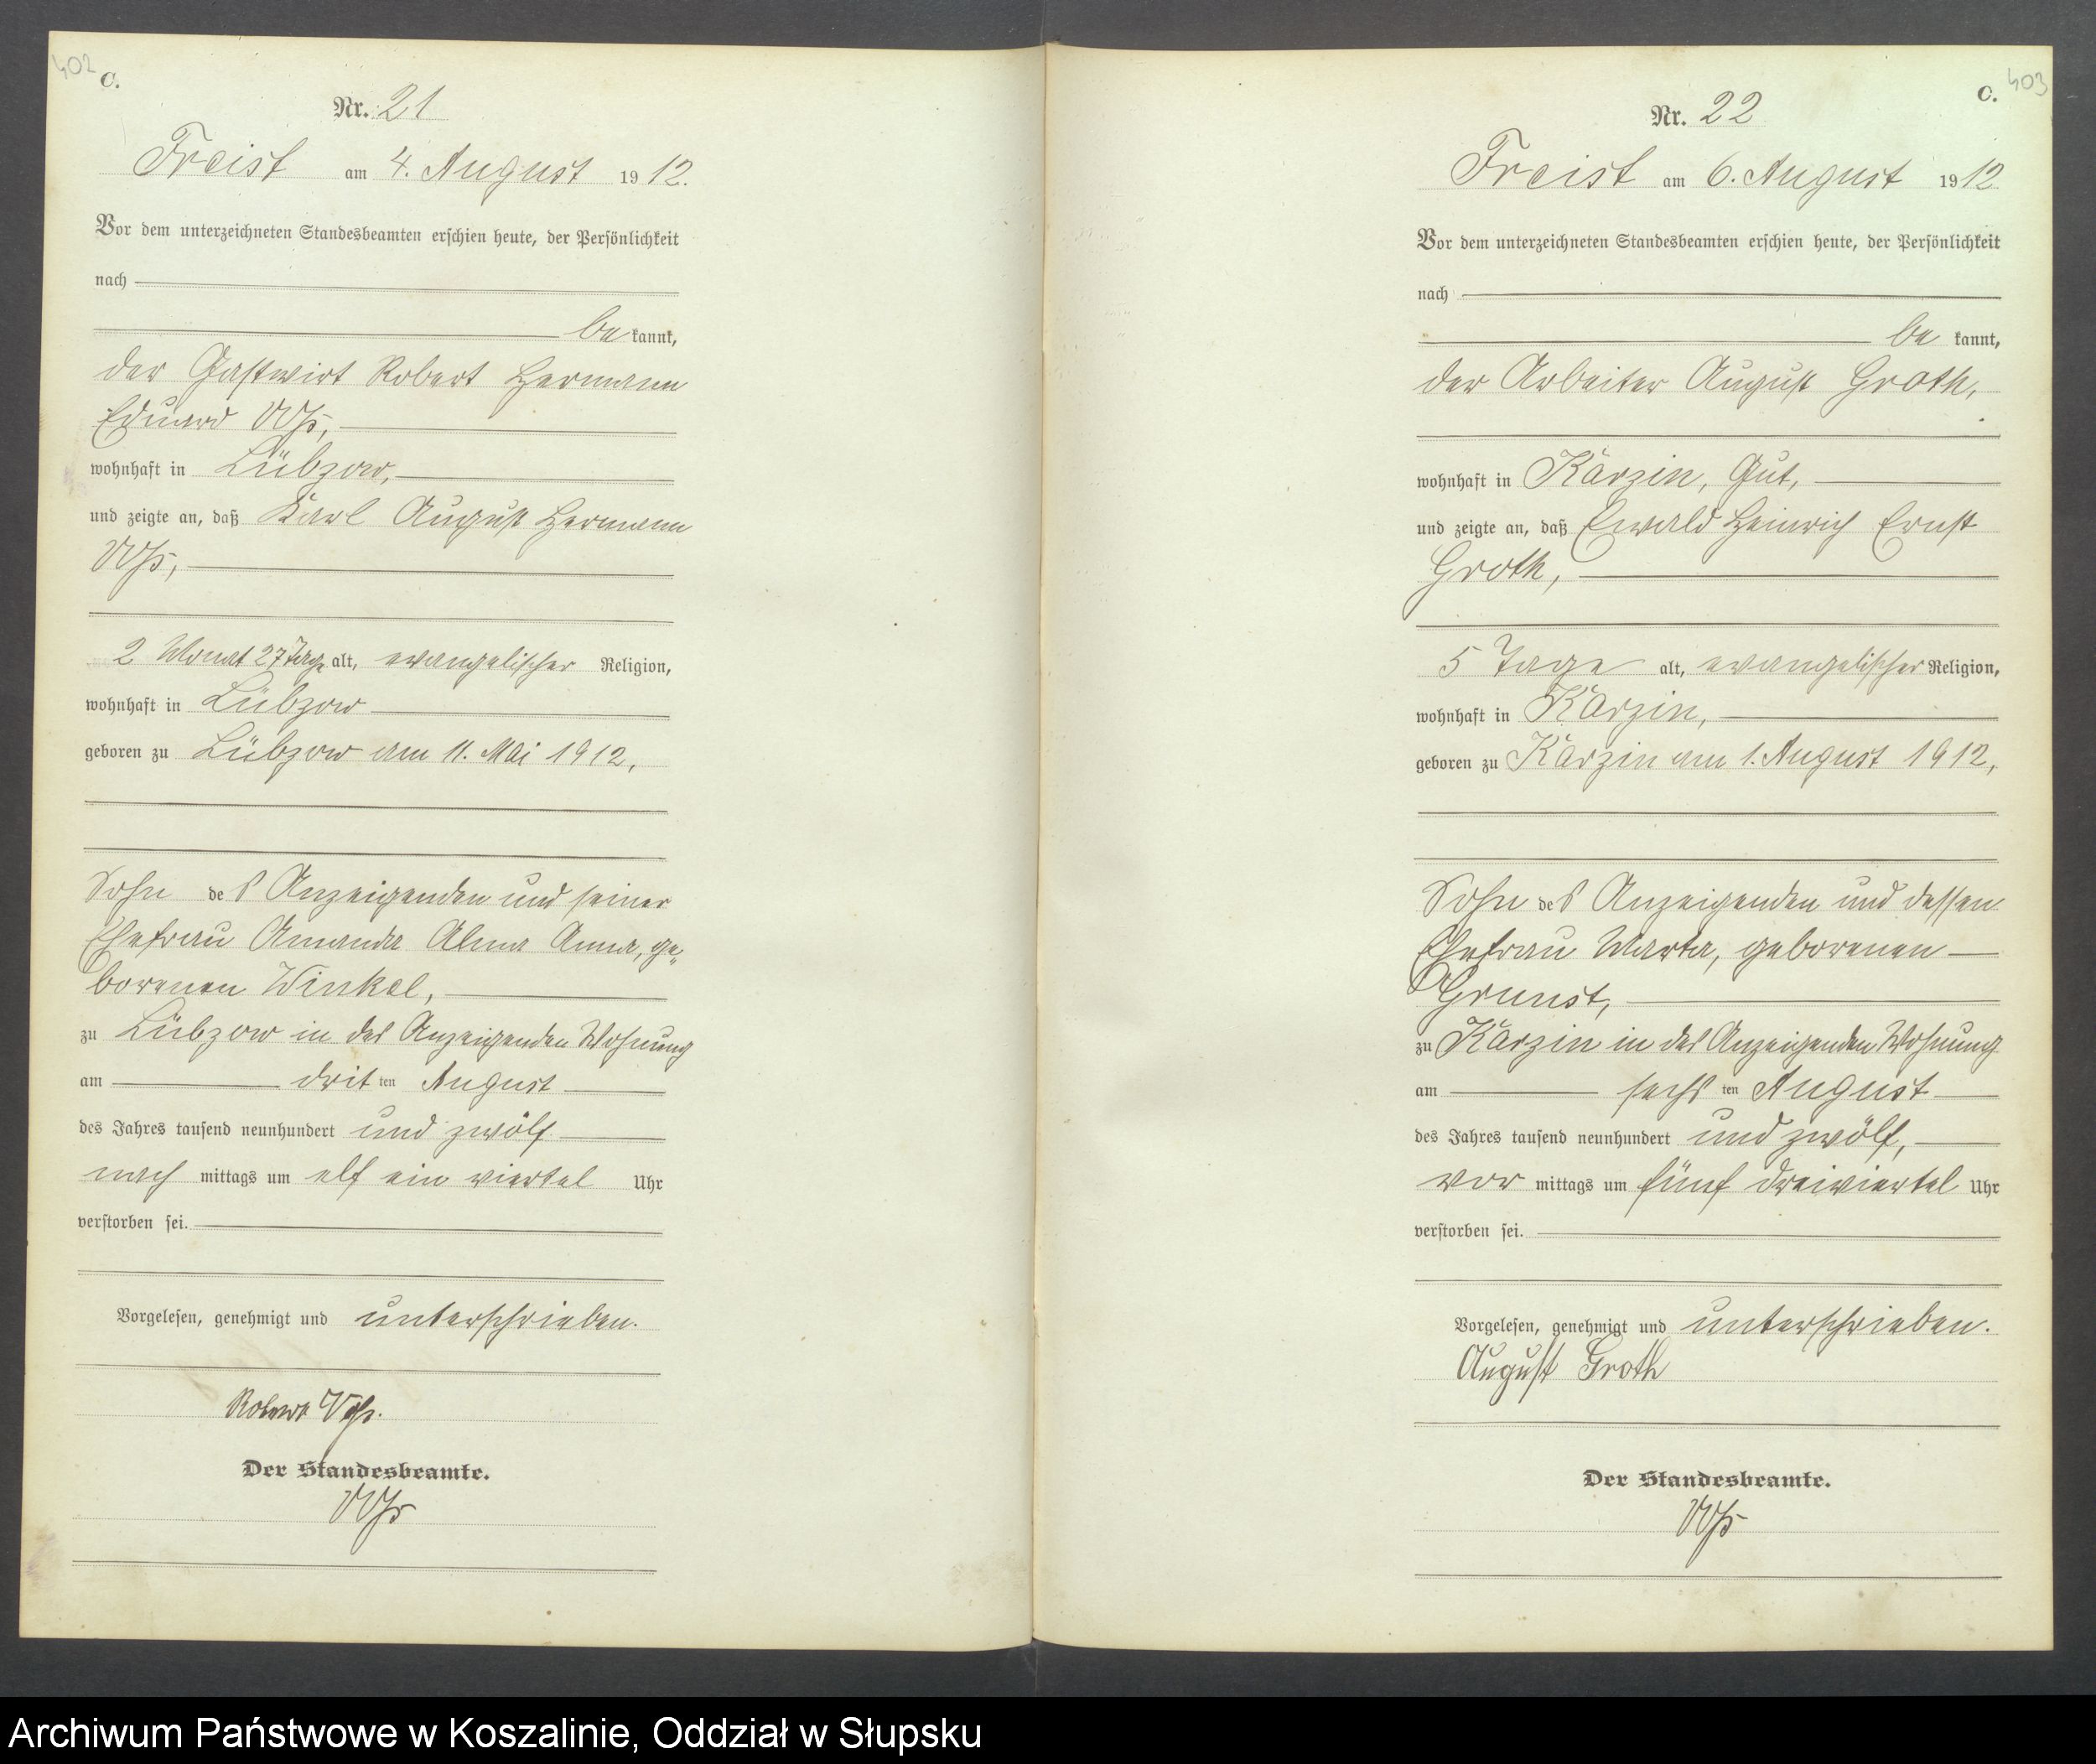 402
C.
Nr. 21
Freist am 4. August 1912.
Vor dem unterzeichneten Standesbeamten erschien heute, der Persönlichkeit
nach
be kannt,
der Gastwirt Robert Hermann
Eduard Voß,
wohnhaft in Lübzow,
und zeigte an, daß Karl August Hermann
Voß,
2 Monat 27 Tage alt, evangelischer Religion,
wohnhaft in Lübzow
geboren zu Lübzow am 11. Mai 1912,
Sohn des Anzeigenden und seiner
Ehefrau Amanda Alma Anna, ge„
borenen Winkel,
zu Lübzow in des Anzeigenden Wohnung
am dritten August
des Jahres tausend neunhundert und zwölf
nach mittags um elf ein viertel Uhr
verstorben sei.
Vorgelesen, genehmigt und unterschrieben.
Robert Voß.
Der Standesbeamte.
Voß
403
C.
Nr. 22
Freist am 6. August 1912
Vor dem unterzeichneten Standesbeamten erschien heute, der Persönlichkeit
nach
be kannt,
der Arbeiter August Groth,
wohnhaft in Karzin, Gut,
und zeigte an, daß Ewald Heinrich Ernst
Groth,
5 Tage alt, evangelischer Religion,
wohnhaft in Karzin,
geboren zu Karzin am 1. August 1912,
Sohn des Anzeigenden und dessen
Ehefrau Marta, geborenen
Grunst,
zu Karzin in des Anzeigenden Wohnung
am sechsten August
des Jahres tausend neunhundert und zwölf,
vor mittags um fünf dreiviertel Uhr
verstorben sei.
Vorgelesen, genehmigt und unterschrieben.
August Groth
Der Standesbeamte.
Voß
Archiwum Państwowe w Koszalinie, Oddział w Słupsku